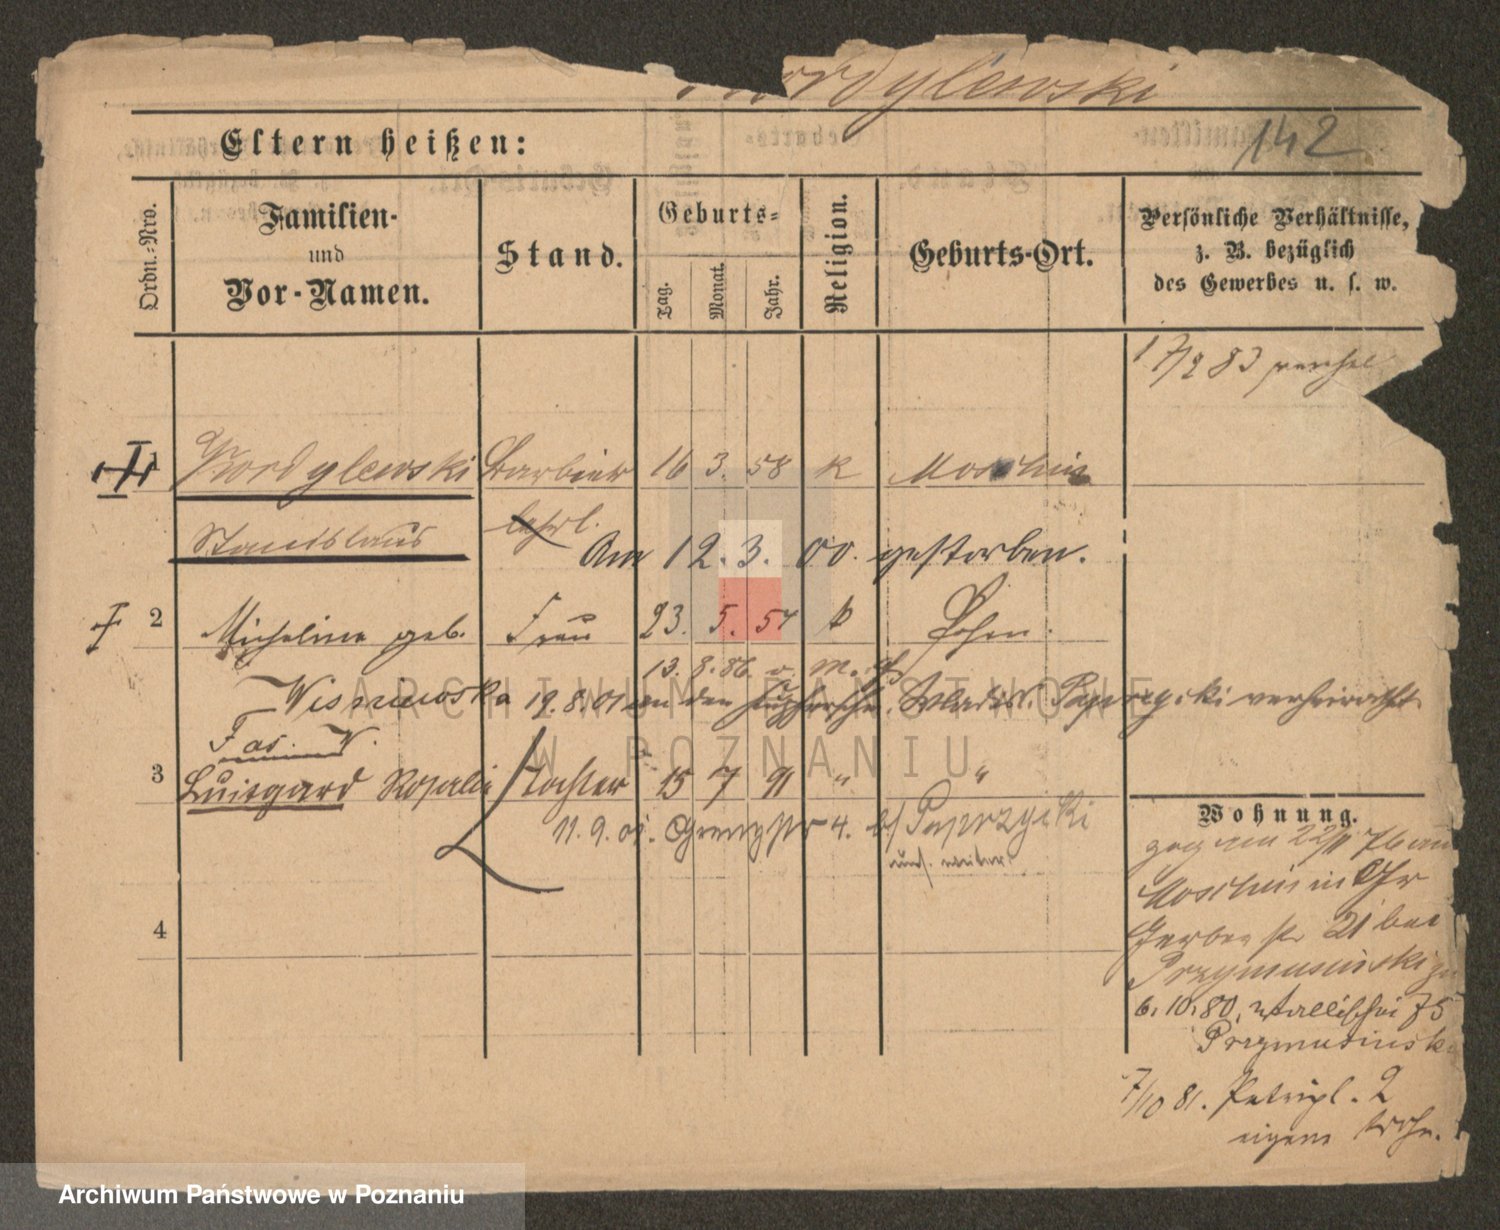 Kordylewski
142
Eltern heißen:
Ordn.-Nro.
Familien-
und
Vor-Namen.
Stand.
Geburts-
Tag.
Monat.
Jahr.
Religion.
Geburts-Ort.
Persönliche Verhältnisse,
z. B. bezüglich
des Gewerbes u. s. w.
17/2 83
1 Kordylewski Barbier 16 3. 58 K Moschin
Stanislaus
Am 12. 3. 00. gestorben.
2 Michalina geb. Frau 23. 5. 57 k Posen.
13. 8. 86.
Wisniewska 19. 8. 01 an den Wladisl. Paprzycki verheirathet.
3 Luitgard Rosalie Tochter 15 7 91 " "
11. 9. 01. Grenzstr 4. b/ Paprzycki
4
Wohnung.
zog am 22/11 76 von
Moschin in
Gerber str 21 bei
Przymusinski
6. 10. 80. Wallischei 75
Przymusinski
7/10 81. Petripl. 2
eigene Wohn.
ARCHIWUM PAŃSTWOWE
W POZNANIU
Archiwum Państwowe w Poznaniu